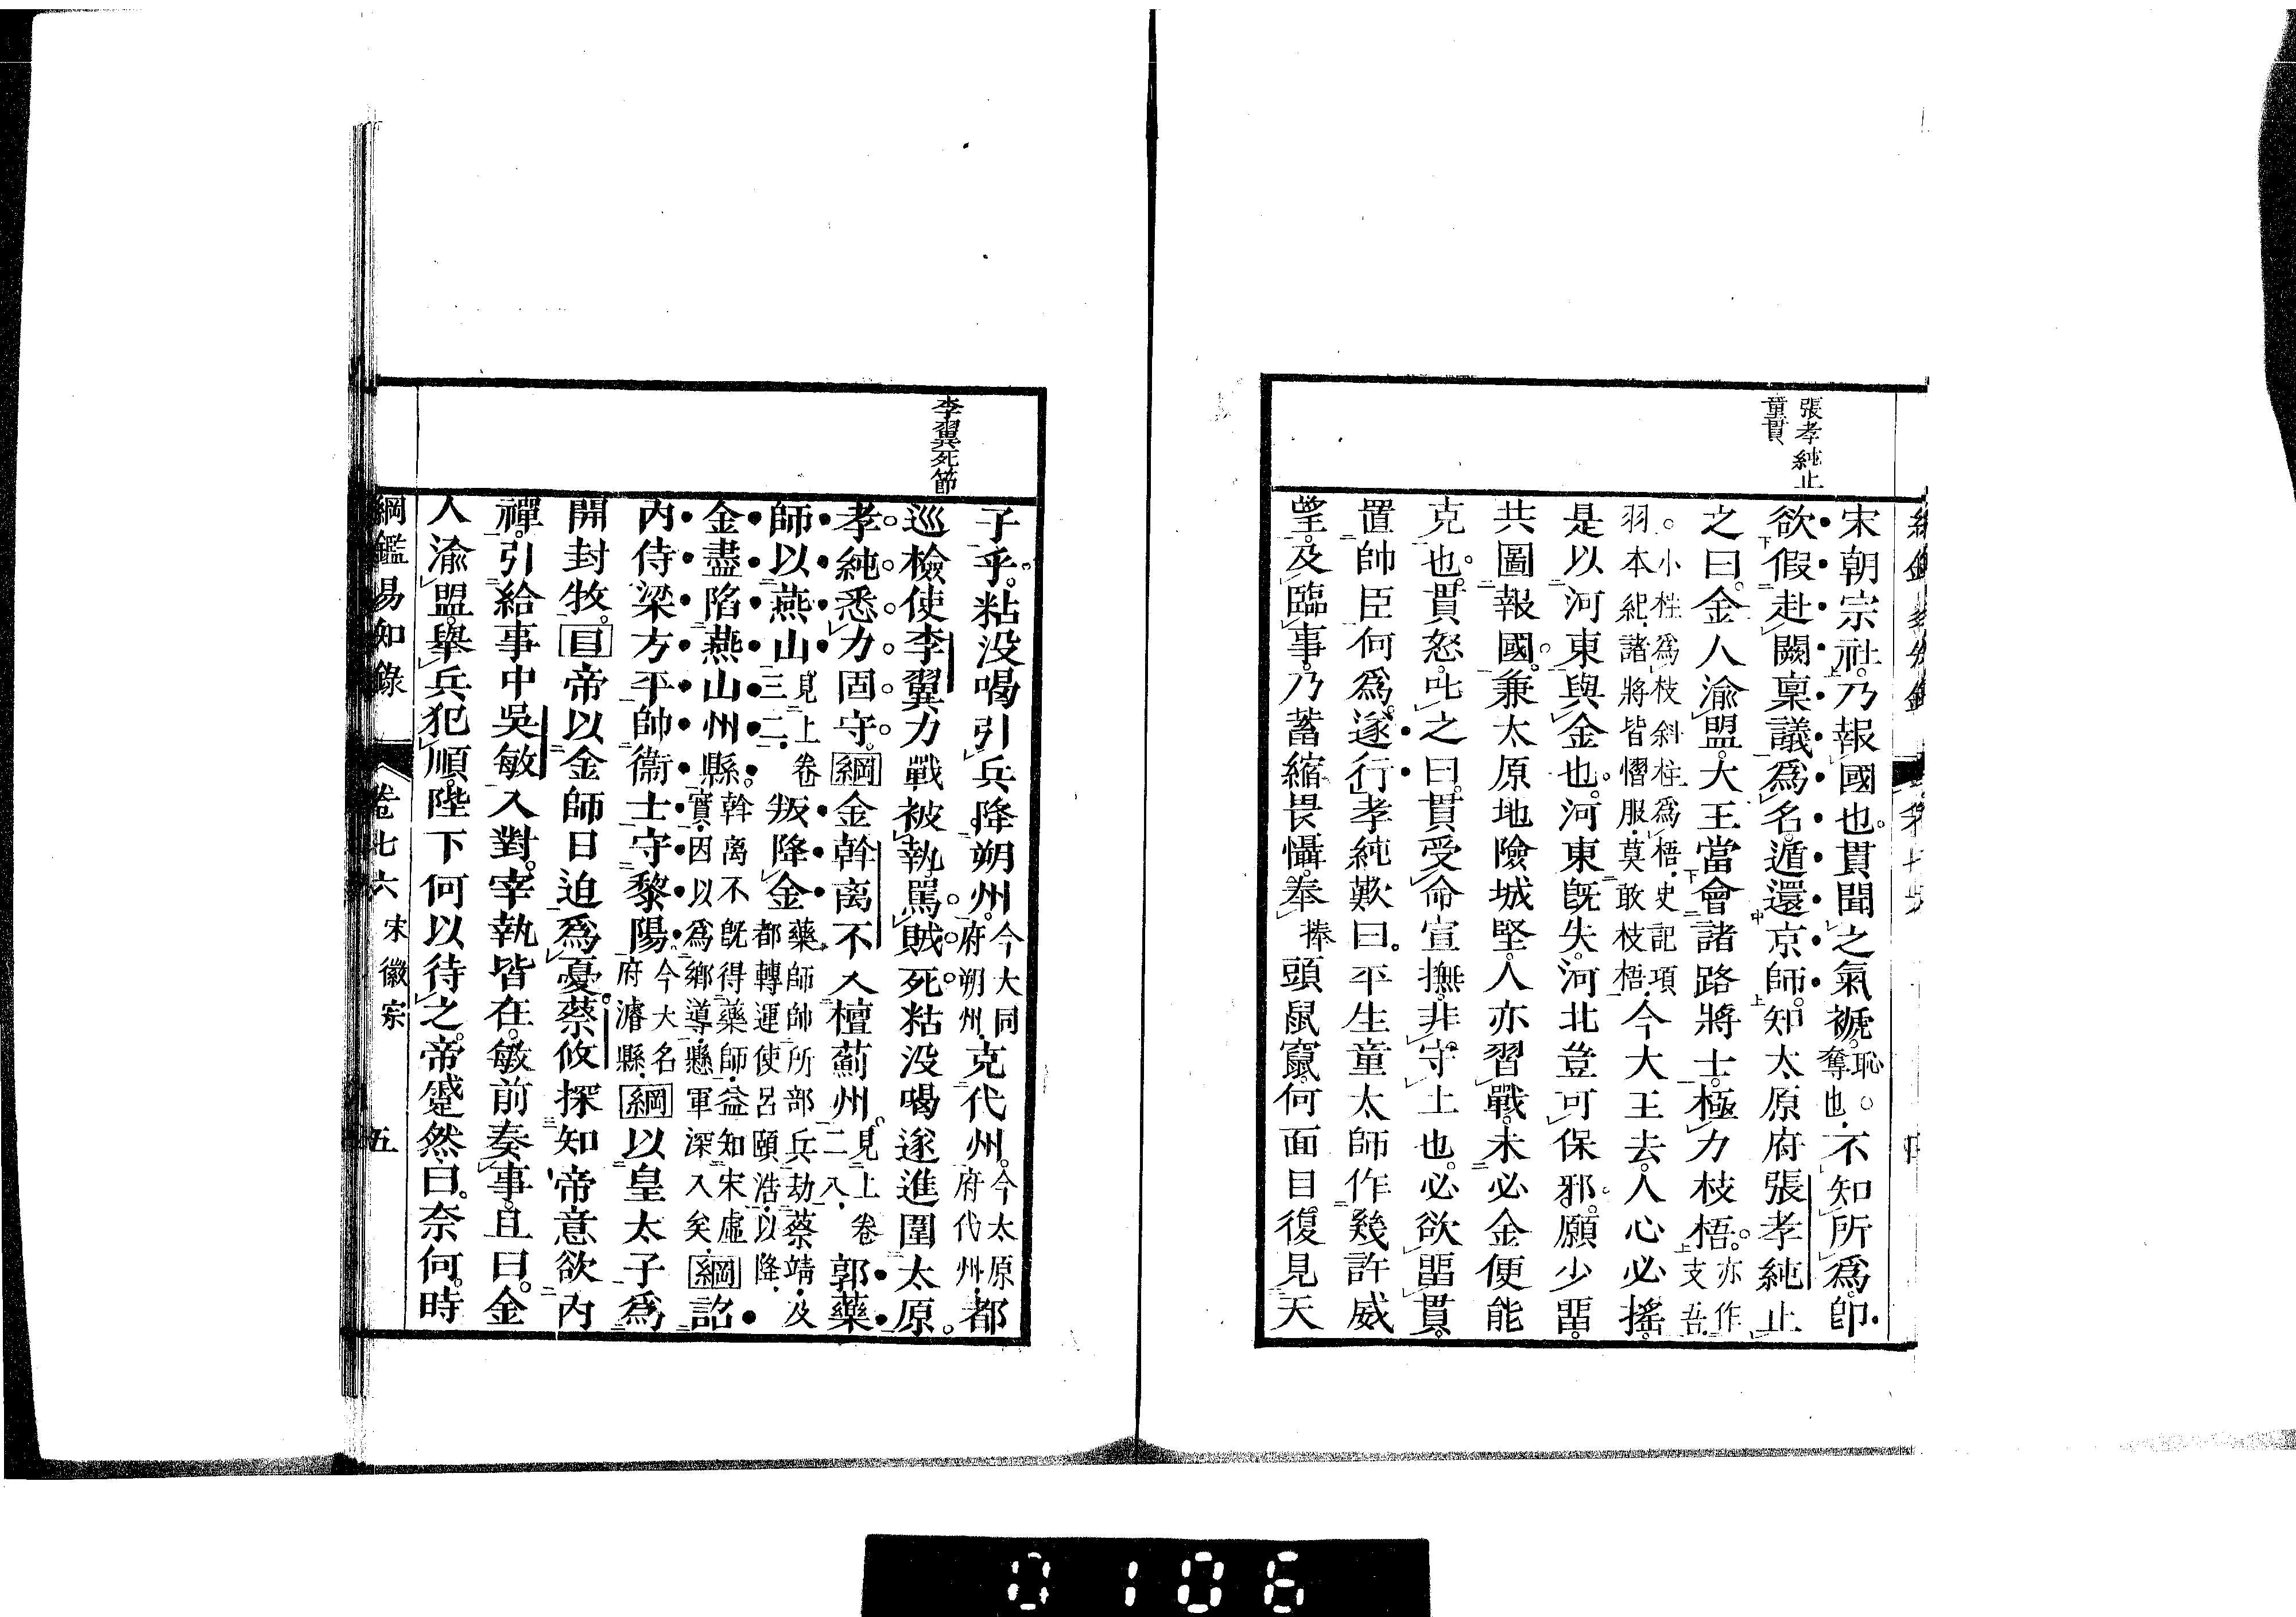 張孝純止
童貫
宋朝宗社。乃報國也。貫聞之氣褫。恥奪也。不知所爲。卽
欲假赴闕稟議爲名。遁還京師。知太原府張孝純止
之曰。金人渝盟。大王當會諸路將士。極力枝梧。亦作支吾
。小柱爲枝斜柱爲梧。史記項羽本紀。諸將皆慴服。莫敢枝梧。今大王去。人心必搖。
是以河東與金也。河東旣失。河北豈可保邪。願少畱。
共圖報國。兼太原地險城堅。人亦習戰。未必金便能
克也。貫怒。叱之曰。貫受命宣撫。非守土也。必欲畱貫。
置帥臣何爲。遂行。孝純歎曰。平生童太師作幾許威
望。及臨事。乃蓄縮畏懾。奉捧頭鼠竄。何面目復見天
李翼死節
子乎。粘没喝引兵降朔州。今大同府朔州。克代州。今太原府代州。都
巡檢使李翼力戰被執。罵賊死。粘没喝遂進圍太原。
孝純悉力固守。綱金斡离不入檀薊州。見上卷二八。郭藥
師以燕山見上卷三二。叛降金藥師帥所部兵劫蔡靖。及都轉運使呂頤浩。以降。
金盡陷燕山州縣。斡离不旣得藥師。益知宋虛實。因以爲鄉導。懸軍深入矣。綱詔
內侍梁方平帥衞士守黎陽。今大名府濬縣。綱以皇太子爲
開封牧。目帝以金師日迫爲憂。蔡攸探知帝意欲內
禪。引給事中吳敏入對。宰執皆在。敏前奏事。且曰。金
人渝盟。舉兵犯順。陛下何以待之。帝蹙然曰。奈何。時
綱鑑易知錄 卷七六 宋徽宗 五
0106